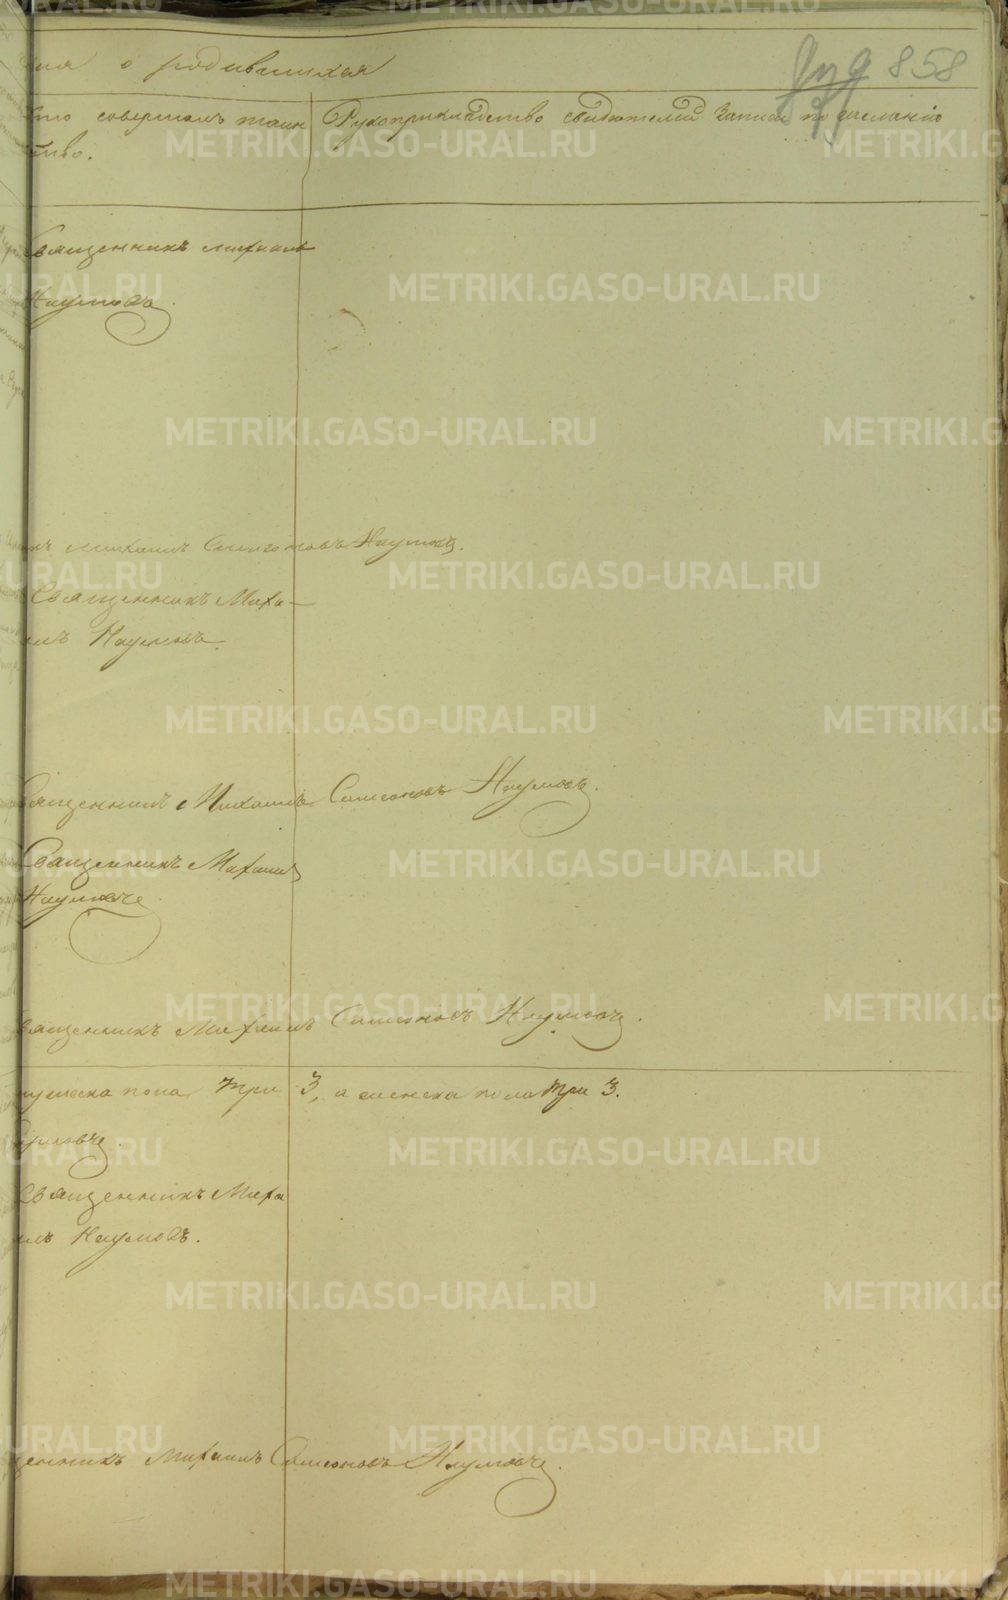 о родившихся
858
кто совершалъ таин
ство.
Рукоприкладство свидѣтелей записи по желанію
Священникъ Михаилъ
Наумовъ.
Михаилъ Симеоновъ Наумовъ.
Священникъ Миха-
илъ Наумовъ.
Священникъ Михаилъ Симеоновъ Наумовъ.
Священникъ Михаилъ
Наумовъ
Священникъ Михаилъ Симеоновъ Наумовъ.
мужеска пола три 3, а женска пола три 3.
Наумовъ.
Священникъ Миха
илъ Наумовъ.
Михаилъ Симеоновъ Наумовъ.
METRIKI.GASO-URAL.RU